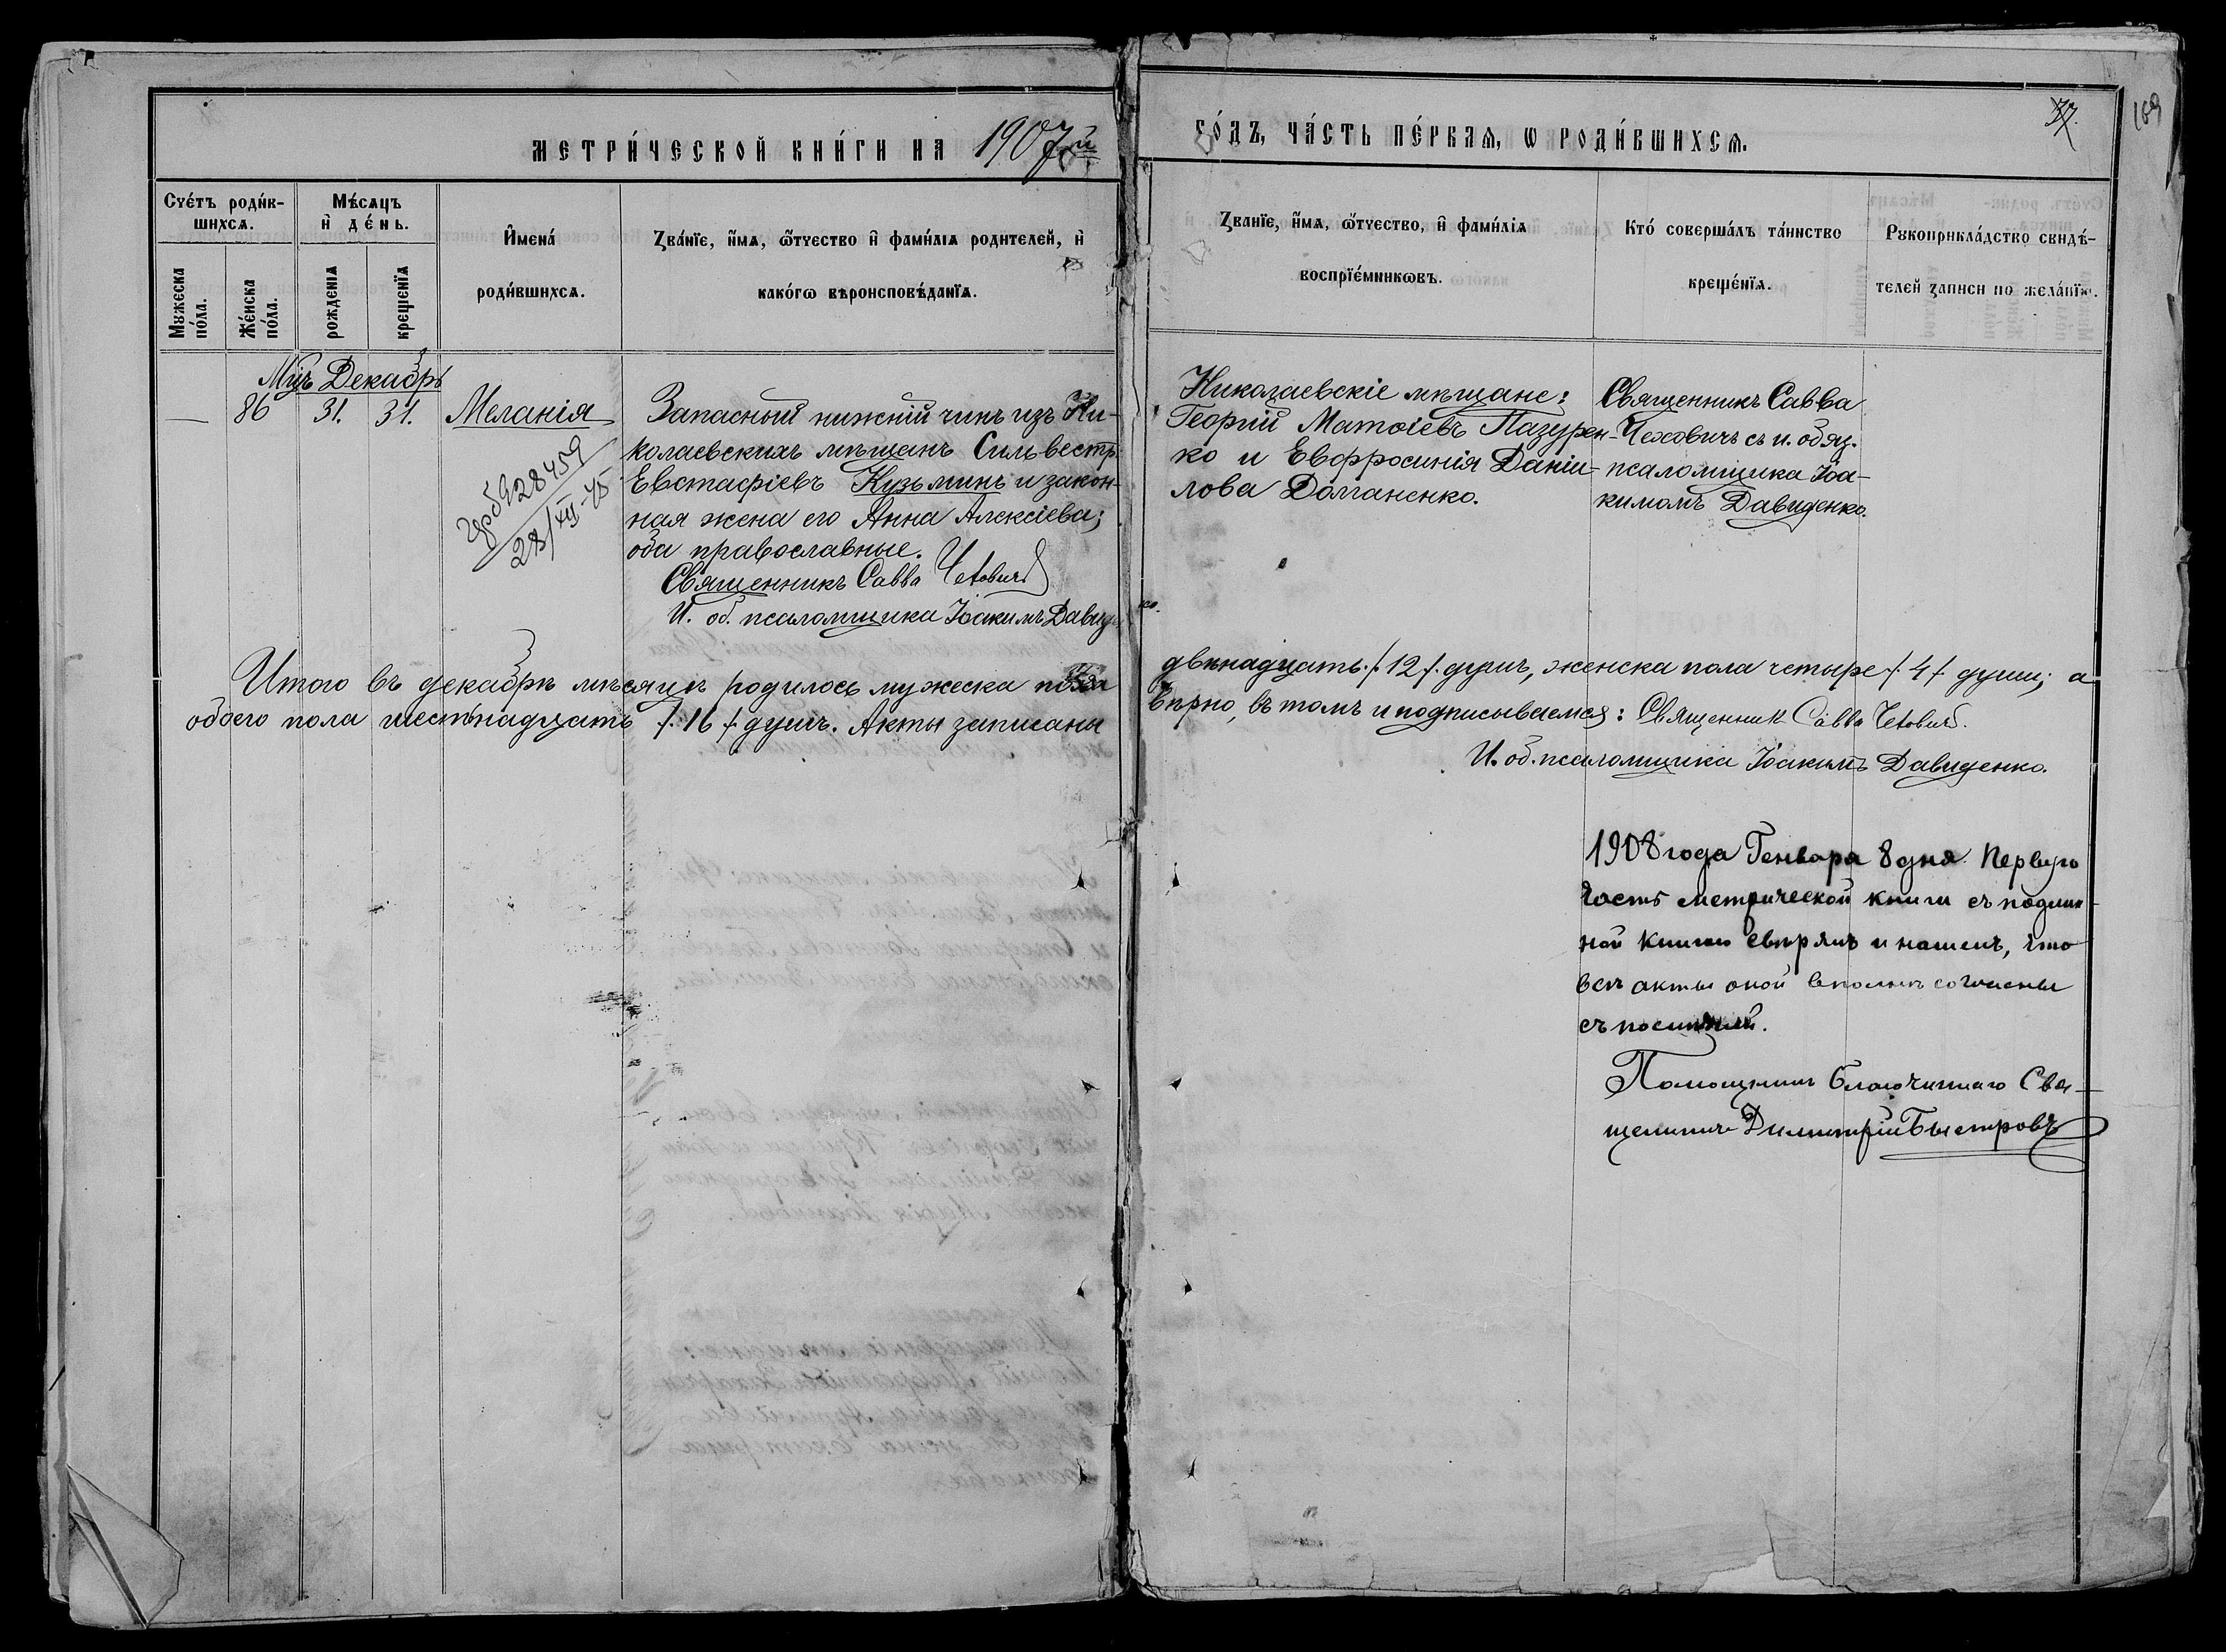 МЕТРИ́ЧЕСКОЙ КНИ́ГИ НА 1907й
ГО́ДЪ, ЧА́СТЬ ПЕ́РВАѦ, Ѡ РОДИ́ВШИХСѦ.
37.
169
Сче́тъ роди́в-
шихсѧ.
Мѣ́сѧцъ
и де́нь.
Имена́
роди́вшихсѧ.
Зва́нїе, и́мѧ, ѻ́тчество и фами́лїѧ родителей, и
како́гѡ вѣроисповѣ́данїѧ.
Мꙋжеска
по́ла.
Же́нска
по́ла.
рожденїѧ
креще́нїѧ
Зва́нїе, и́мѧ, ѻ́тчество, и фами́лїѧ
воспрїе́мникѡвъ.
Кто́ соверша́лъ та́инство
креще́нїѧ.
Рꙋкоприкла́дство свидѣ́-
телей записи по жела́нїю.
Мцъ Декабрь
— 86 31. 31. Меланія
928459
28/XII-45
Запасный нижній чинъ изъ Ни-
колаевскихъ мѣщанъ Сильвестръ
Евстафіевъ Кузьминъ и закон-
ная жена его Анна Алексіева;
оба православные.
Священникъ Савва Чехович
И. об. псаломщика Іоакимъ Давиденко.
Николаевскіе мѣщане:
Георгій Матѳіевъ Пазурен-
ко и Евфросинія Даніи-
лова Долганенко.
Священникъ Савва
Чеховичъ съ и. обяз.
псаломщика Іоа-
кимомъ Давиденко.
Итого въ декабрѣ мѣсяцѣ родилось мужеска пола
двѣнадцать /.12./ душъ, женска пола четыре /.4./ души; а
обоего пола шестьнадцать /.16./ душъ. Акты записаны
вѣрно, въ томъ и подписываемся: Священник Савва Чехович.
И. об. псаломщика Іоакимъ Давиденко.
1908 года Генваря 8 дня Первую
часть метрической книги съ подлин-
ной книгою свѣрялъ и нашелъ, что
всѣ акты оной вполнѣ согласны
съ послѣдней.
Помощникъ Благочиннаго Свя-
щенникъ Димитрій Быстровъ